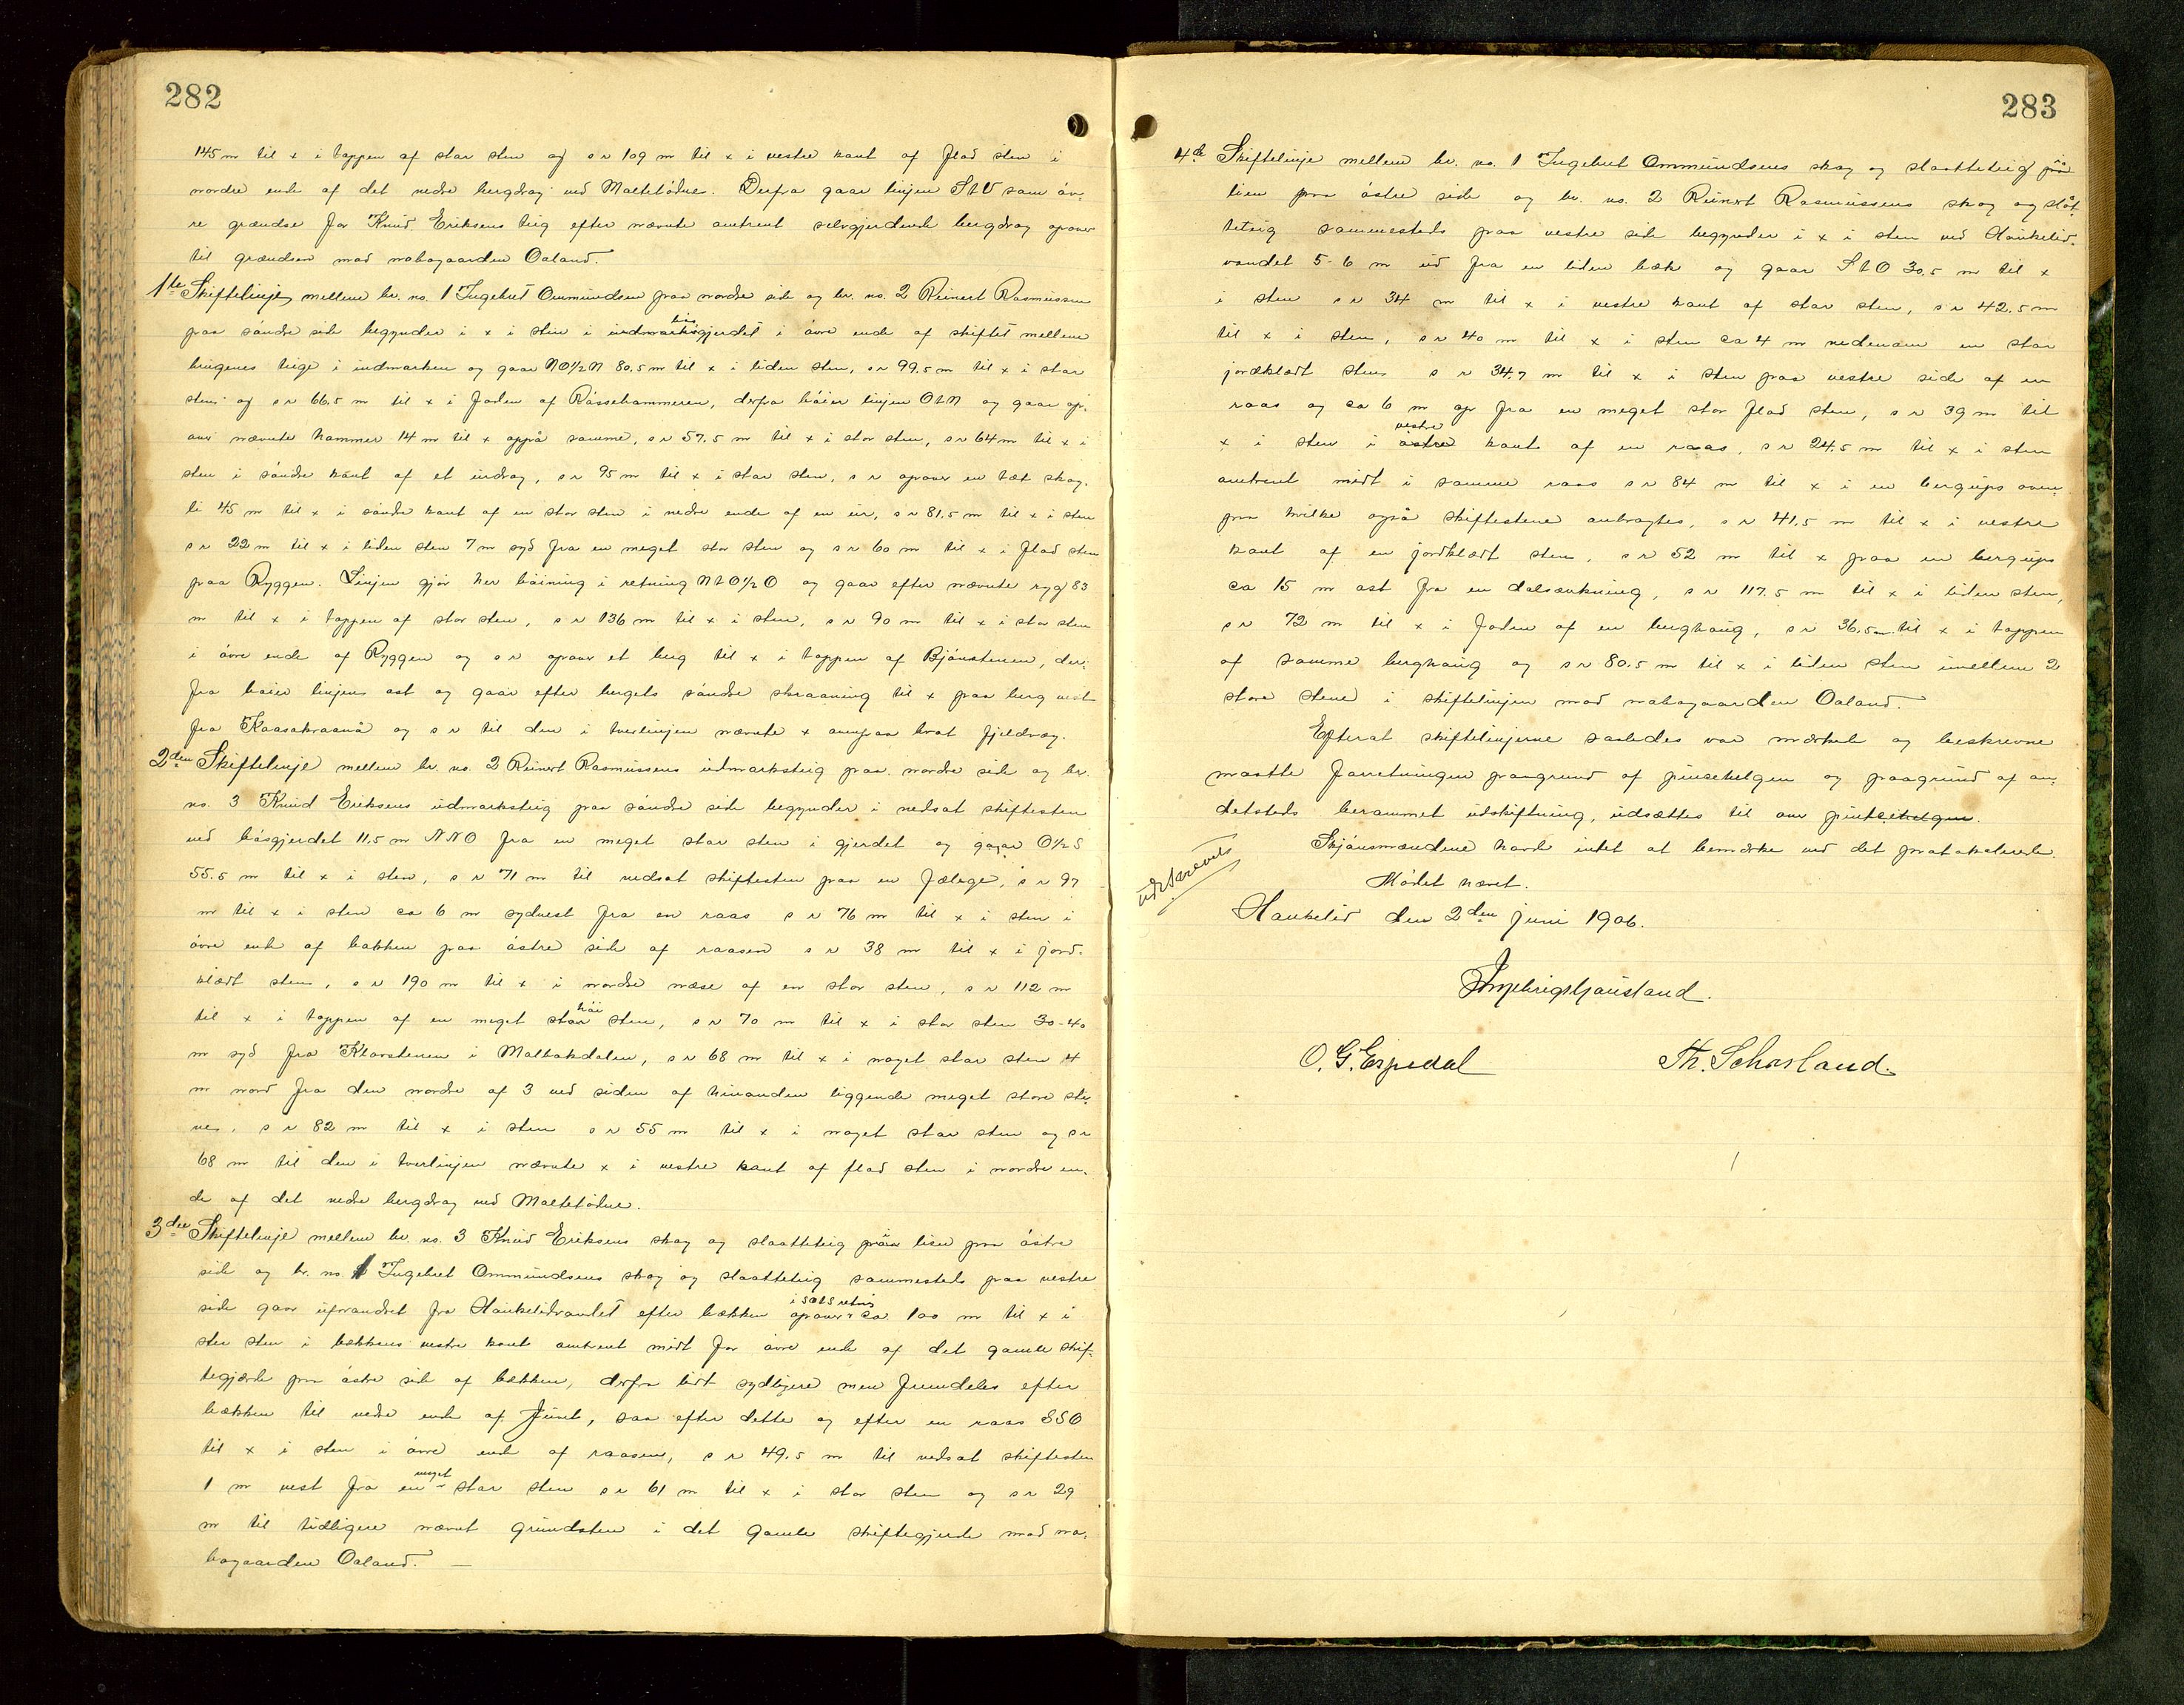 282
145 m til x i toppen af stor sten og s r 109 m til x i vestre kant af flad sten i
nordre ende af det nedre bergdrag ved Maltetødne. Derfra gaar linjen StV som øv-
re grændse for Knud Eriksens teig efter nævnte omtrent selvgjerdende bergdrag opover
til grændsen mod nabogaarden Oaland.
1ste Skiftelinje mellem br. no. 1 Ingebret Ommundsen paa nordre side og br. no. 2 Reinert Rasmussen
paa søndre side begynder i x i sten i gjerdet i øvre ende af skiftet mellem
brugenes teige i indmarken og gaar NO½N 80.5 m til x i liden sten, s r 99.5 m til x i stor
sten og s r 66.5 m til x i foden af Råssehammeren, derfra bøier linjen OtN og gaar op-
over nævnte hammer 14 m til x oppå samme, s r 57.5 m til x i stor sten, s r 64 m til x i
sten i søndre kant af et indrag, s r 95 m til x i stor sten, s r opover en tæt skog-
li 45 m til x i søndre kant af en stor sten i nedre ende af en ur, s r 81.5 m til x i sten
s r 22 m til x i liden sten 7 m syd fra en meget stor sten og s r 60 m til x i flad sten
paa Ryggen. Linjen gjør her bøining i retning NtO½O og gaar efter nævnte ryg 83
m til x i toppen af stor sten, s r 136 m til x i sten, s r 90 m til x i stor sten
i øvre ende af Ryggen og s r opover et berg til x i toppen af Bjønstenen, der-
fra bøier linjen ost og gaar efter bergets søndre skraaning til x paa berg vest
fra Kaasakraanå og s r til den i tverlinjen nævnte x ovenpaa brat fjeldvæg.
2den Skiftelinje mellem br. no. 2 Reinert Rasmussens udmarksteig paa nordre side og br.
no. 3 Knud Eriksens udmarksteig paa søndre side begynder i nedsat skiftesten
ved bøsgjerdet 11.5 m NNO fra en meget stor sten i gjerdet og gaar O½S
55.5 m til x i sten, s r 71 m til nedsat skiftesten paa en fælege, s r 97
m til x i sten ca 6 m sydvest fra en raas s r 76 m til x i sten i
øvre ende af bakken paa østre side af raasen s r 38 m til x i jord-
klædt sten, s r 190 m til x i nordre næse af en stor sten, s r 112 m
til x i toppen af en meget høi sten, s r 70 m til x i stor sten 30-40
m syd fra Klorstenen i Maltakdalen, s r 68 m til x i noget stor sten 4
m nord fra den nordre af 3 ved siden af hinanden liggende meget store ste-
ne, s r 82 m til x i sten s r 55 m til x i noget stor sten og s r
68 m til den i tverlinjen nævnte x i vestre kant af flad sten i nordre en-
de af det nedre bergdrag ved Maltetødne.
3die Skiftelinje mellem br. no. 3 Knud Eriksens skog og slaatteteig lien paa østre
side og br. no. 1 Ingebret Ommundsens skog og slaatteteig sammesteds paa vestre
side gaar uforandret fra Haukelidvandet efter bækken opover i retning ca 100 m til x i
stor sten i bækkens vestre kant omtrent midt for øvre ende af det gamle skif-
tegjærde paa østre side af bækken, derfra lidt sydligere men fremdeles efter
bækken til nedre ende af Juvet, saa efter dette og efter en raas SSO
til x i sten i øvre ende af raasen, s r 49.5 m til nedsat skiftesten
1 m vest fra en meget stor sten s r 61 m til x i stor sten og s r 29
m til tidligere nævnt grundsten i det gamle skiftegjerde mod na-
bogaarden Oaland.
283
4de Skiftelinje mellem br. no. 1 Ingebret Ommundsens skog og slaatteteig
lien paa østre side og br. no. 2 Reinert Rasmussens skog og slåt-
teteig sammesteds paa vestre side begynder i x i sten ved Haukelid-
vandet 5-6 m ud fra en liden bæk og gaar StO 30.5 m til x
i sten s r 34 m til x i vestre kant af stor sten, s r 42.5 m
til x i sten, s r 40 m til x i sten ca 4 m nedenom en stor
jordklædt sten s r 34.7 m til x i sten paa vestre side af en
raas og ca 6 m op fra en meget stor flad sten, s r 39 m til
x i sten i vestre kant af en raas, s r 24.5 m til x i sten
omtrent midt i samme raas s r 84 m til x i en bergups oven-
paa hvilke også skiftestene anbragtes, s r 41.5 m til x i vestre
kant af en jordklædt sten, s r 52 m til x paa en bergups
ca 15 m ost fra en dalsænkning, s r 117.5 m til x i liden sten,
s r 72 m til x i foden af en berghaug, s r 36.5 m til x i toppen
af samme berghaug og s r 80.5 m til x i liden sten imellem 2
store stene i skiftelinjen mod nabogaarden Oaland.
Efterat skiftelinjerne saaledes var mærkede og beskrevne
maatte forretningen paagrund af pinsehelgen og paagrund af an-
detsteds berammet udskiftning, udsættes til over
Skjønsmændene havde intet at bemærke ved det protokolerede.
Mødet hævet.
udskrevet
Haukelid den 2den juni 1906.
O. G. Espedal
Th. Schasland.